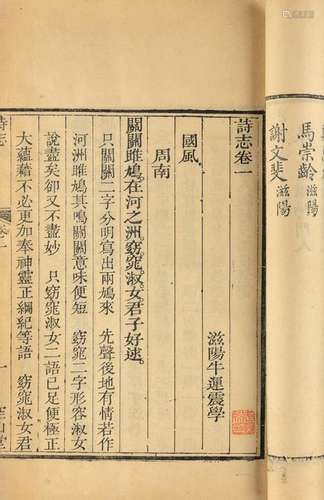 馬崇齡 滋陽
謝文斐 滋陽
詩志卷一
滋陽牛運震學
國風
周南
關關雎鳩在河之洲窈窕淑女君子好逑
只關關二字分明寫出兩鳩來 先聲後地有情若作
河洲雎鳩其鳴關關意味便短 窈窕二字形容淑女
說盡矣卻又不盡妙 只窈窕淑女二語已足便極正
大蘊藉不必更加奉神靈正綱紀等語 窈窕淑女君
詩志 卷一 一